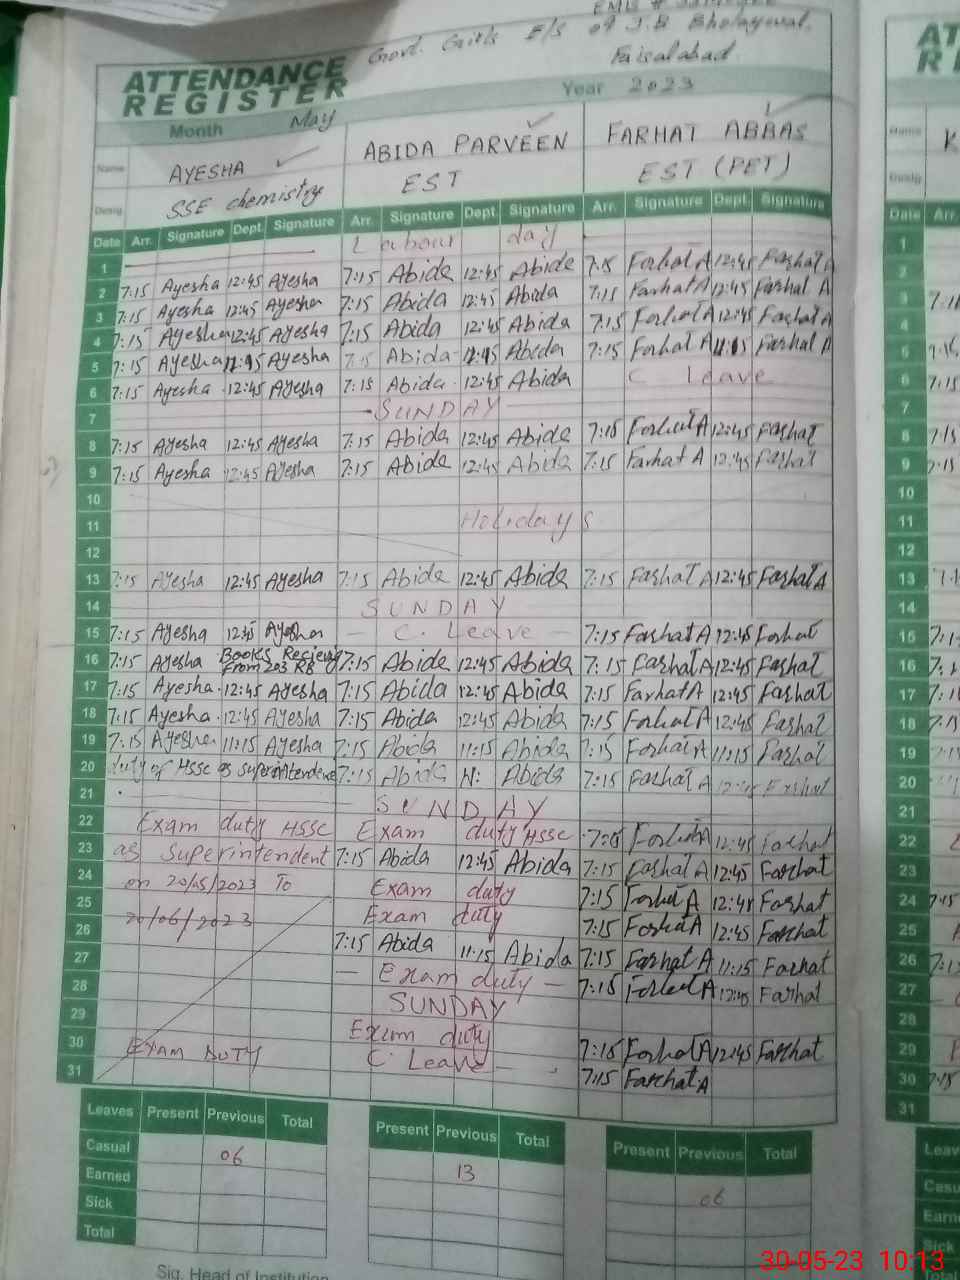 Govt. Girls E/S of J.B Bholeywal.
Faisalabad.
ATTENDANCE
REGISTER
Year 2023
Month May
Name AYESHA ABIDA PARVEEN FARHAT ABBAS
Desig. SSE chemistry EST EST (PET)
Date Arr. Signature Dept. Signature Arr. Signature Dept. Signature Arr. Signature Dept. Signature
1 Labour day
2 7:15 Ayesha 12:45 Ayesha 7:15 Abida 12:45 Abida 7:15 Farhat A 12:45 Farhat A
3 7:15 Ayesha 12:45 Ayesha 7:15 Abida 12:45 Abida 7:15 Farhat A 12:45 Farhat A
4 7:15 Ayesha 12:45 Ayesha 7:15 Abida 12:45 Abida 7:15 Farhat A 12:45 Farhat A
5 7:15 Ayesha Ayesha 7:15 Abida Abida 7:15 Farhat A Farhat A
6 7:15 Ayesha 12:45 Ayesha 7:15 Abida 12:45 Abida C Leave
7 SUNDAY
8 7:15 Ayesha 12:45 Ayesha 7:15 Abida 12:45 Abida 7:15 Farhat A 12:45 Farhat
9 7:15 Ayesha 12:45 Ayesha 7:15 Abida 12:45 Abida 7:15 Farhat A 12:45 Farhat
10
11 Holidays
12
13 7:15 Ayesha 12:45 Ayesha 7:15 Abida 12:45 Abida 7:15 Farhat A 12:45 Farhat A
14 SUNDAY
15 7:15 Ayesha 12:45 Ayesha C. Leave 7:15 Farhat A 12:45 Farhat
16 7:15 Ayesha Books Recieving From 203 RB 7:15 Abida 12:45 Abida 7:15 Farhat A 12:45 Farhat
17 7:15 Ayesha 12:45 Ayesha 7:15 Abida 12:45 Abida 7:15 Farhat A 12:45 Farhat
18 7:15 Ayesha 12:45 Ayesha 7:15 Abida 12:45 Abida 7:15 Farhat A 12:45 Farhat
19 7:15 Ayesha 11:15 Ayesha 7:15 Abida 11:15 Abida 7:15 Farhat A 11:15 Farhat
20 duty of HSSC as Superintendent 7:15 Abida Abida 7:15 Farhat A 12:45 Farhat
21 SUNDAY
22 Exam duty HSSC Exam duty HSSC Farhat A 12:45 Farhat
23 as Superintendent 7:15 Abida 12:45 Abida 7:15 Farhat A 12:45 Farhat
24 on 20/05/2023 To Exam duty 7:15 Farhat A 12:45 Farhat
25 20/06/2023 Exam duty 7:15 Farhat A 12:45 Farhat
26 7:15 Abida 11:15 Abida 7:15 Farhat A 11:15 Farhat
27 Exam duty 7:15 Farhat A 12:45 Farhat
28 SUNDAY
29 Exam duty 7:15 Farhat A 12:45 Farhat
30 EXAM DUTY C. Leave 7:15 Farhat A
31
Leaves Present Previous Total Present Previous Total Present Previous Total
Casual 06 13 06
Earned
Sick
Total
Sig. Head of Institution
30-05-23 10:13